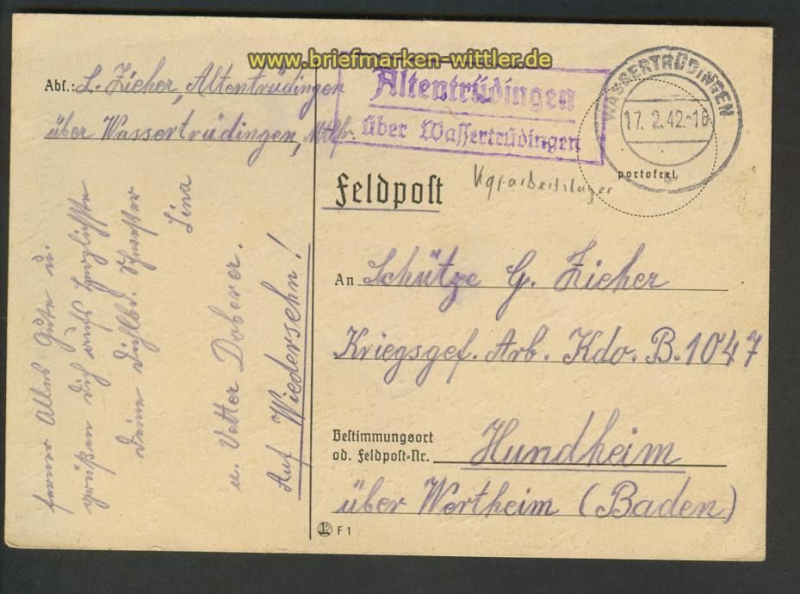 www.briefmarken-wittler.de
Abs.: L. Zieher, Altentrüdingen
über Wassertrüdingen, Mttlfr.
Altentrüdingen
über Wassertrüdingen
WASSERTRÜDINGEN
17.2.42.-16
portofrei
Feldpost
Kgf-arbeitslager
An Schütze G. Zieher
Kriegsgef. Arb. Kdo. B. 1047
Bestimmungsort
od. Feldpost-Nr. Hundheim
über Wertheim (Baden)
F 1
ferner Alles Gute u.
grüßen Dich aufs herzlichste
Deine Schwester
Lina
u. Vetter
Auf Wiedersehn!